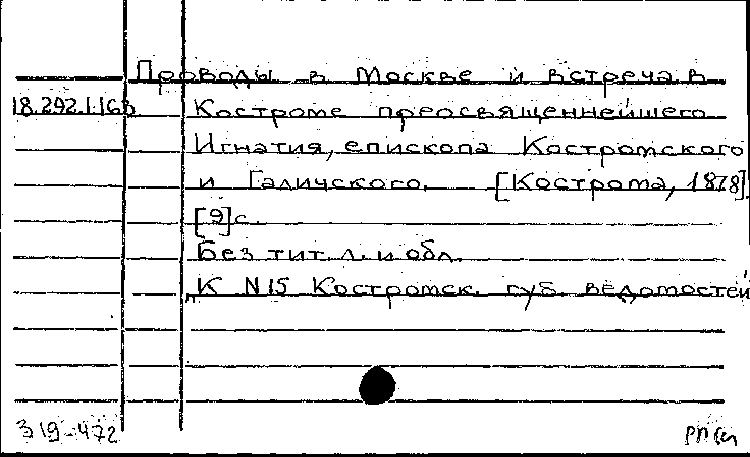 Проводы в Москве и встреча в
18.292.1.163 Костроме преосвященнейшего
Игнатия, епископа Костромского
и Галичского. [Кострома, 1878].
[9]с.
Без тит. л. и обл.
К N 15 Костромск. губ. ведомостей
319-472